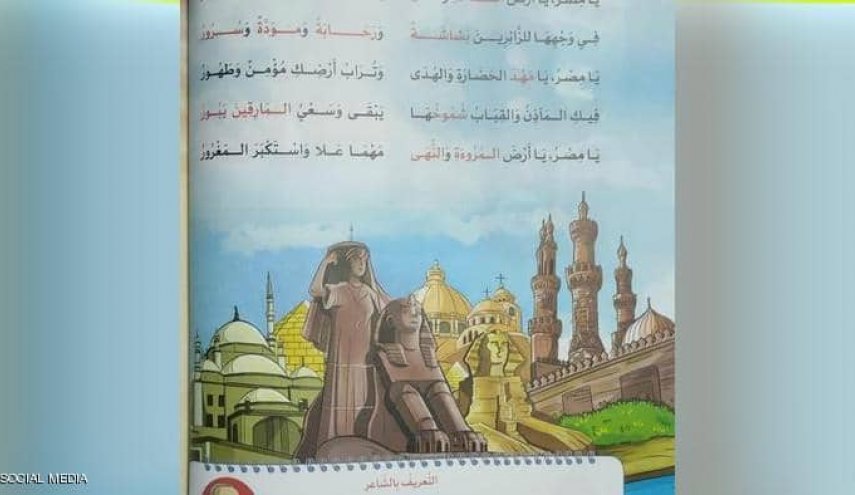 يَا مِصْرُ، يَا أَرْضَ
فِي وَجْهِهَا لِلزَّائِرِينَ بَشَاشَةٌ وَرَحَابَةٌ وَمَوَدَّةٌ وَسُرُورُ
يَا مِصْرُ، يَا مَهْدَ الحَضَارَةِ وَالهُدَى وَتُرَابُ أَرْضِكِ مُؤْمِنٌ وَطَهُورُ
فِيكِ الـمَآذِنُ وَالقِبَابُ شُمُوخُهَا يَبْقَى وَسَعْيُ الـمَارِقِينَ يَبُورُ
يَا مِصْرُ، يَا أَرْضَ الـمُرُوءَةِ وَالنُّهَى مَهْمَا عَلَا وَاسْتَكْبَرَ الـمَغْرُورُ
التَّعريفُ بِالشَّاعرِ
SOCIAL MEDIA